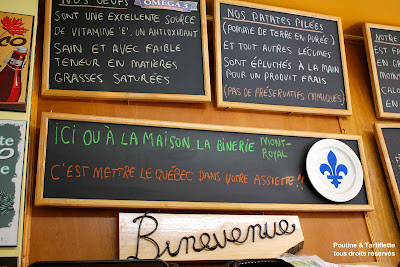 NOS OEUFS
OMEGA 3
SONT UNE EXCELLENTE SOURCE
DE VITAMINE 'E', UN ANTIOXIDANT
SAIN ET AVEC FAIBLE
TENEUR EN MATIÈRES
GRASSES SATURÉES
NOS PATATES PILÉES
(POMME DE TERRE EN PURÉE)
ET TOUT AUTRES LÉGUMES
SONT ÉPLUCHÉS À LA MAIN
POUR UN PRODUIT FRAIS
(PAS DE PRÉSERVATIFS CHIMIQUES)
ICI OU À LA MAISON, LA BINERIE MONT-
ROYAL
C'EST METTRE LE QUÉBEC DANS VOTRE ASSIETTE!!
Binevenue
Poutine & Tartiflette
tous droits réservés